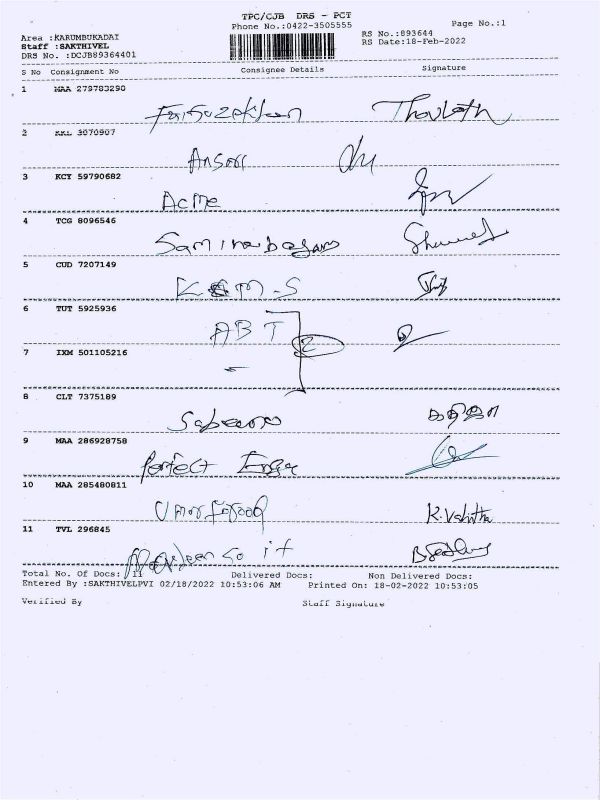 TPC/CJB DRS - PCT
Phone No.:0422-3505555
Page No.:1
Area :KARUMBUKADAI
RS No.:893644
Staff :SAKTHIVEL
RS Date:18-Feb-2022
DRS No. :DCJB89364401
S No Consignment No Consignee Details Signature
1 MAA 279783290
2 KKL 3070907
Ansari
3 KCY 59790682
Acme
4 TCG 8096546
5 CUD 7207149
K M-S
6 TUT 5925936
ABT 2
7 IXM 501105216
8 CLT 7375189
9 MAA 286928758
Perfect Engg
10 MAA 285480811
Umar Farooq
11 TVL 296845
Total No. Of Docs: 11 Delivered Docs: Non Delivered Docs:
Entered By :SAKTHIVELPVI 02/18/2022 10:53:06 AM Printed On: 18-02-2022 10:53:05
Verified By Staff Signature